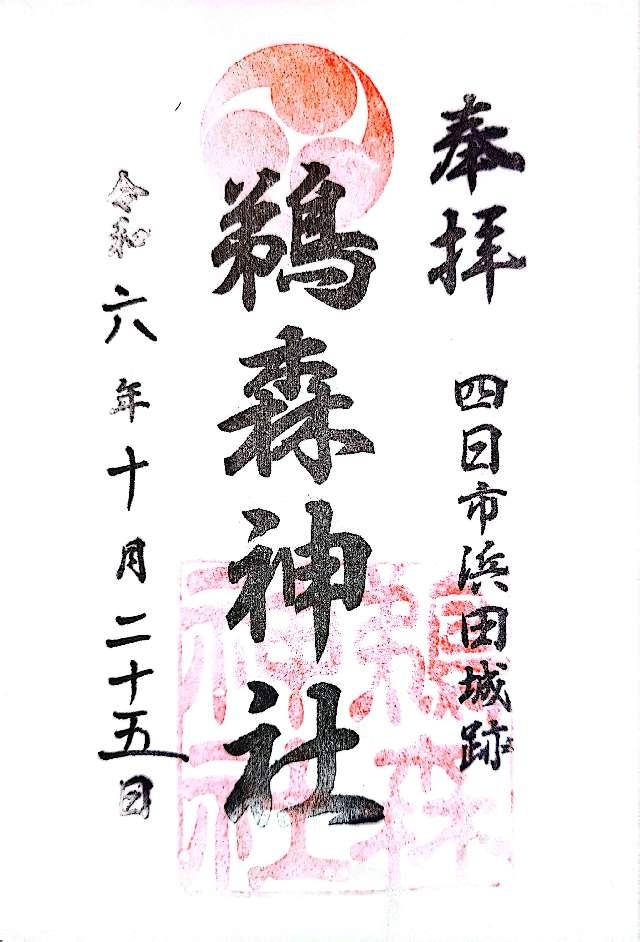 奉拝
四日市浜田城跡
鵜森神社
令和六年十月二十五日